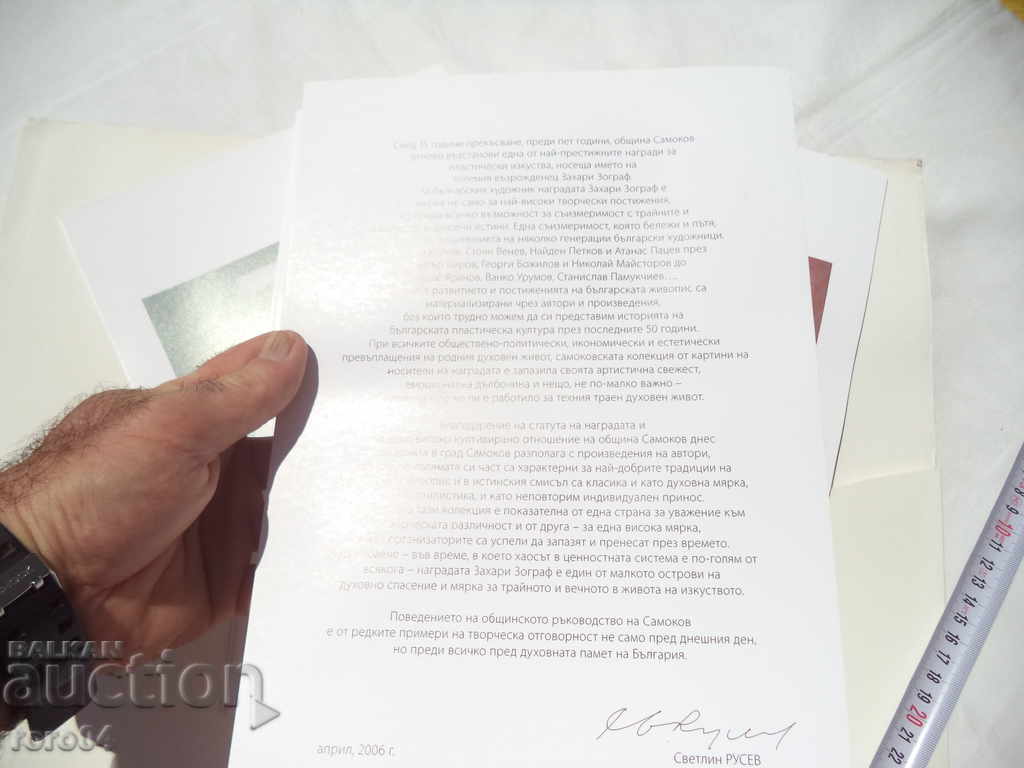 След 15 години прекъсване, преди пет години, община Самоков
отново възстанови една от най-престижните награди за
пластически изкуства, носеща името на
големия възрожденец Захари Зограф.
За българския художник наградата Захари Зограф е
не само за най-високи творчески постижения,
всичко възможност за съизмеримост с трайните и
истини. Една съизмеримост, която бележи и пътя,
на няколко генерации български художници.
Стоян Венев, Найден Петков и Атанас Пацев през
Киров, Георги Божилов и Николай Майсторов до
Вълко Урумов, Станислав Памукчиев....
развитието и постиженията на българската живопис са
материализирани чрез автори и произведения,
без които трудно можем да си представим историята на
българската пластическа култура през последните 50 години.
При всичките обществено-политически, икономически и естетически
превъплащения на родния духовен живот, самоковската колекция от картини на
носители на наградата е запазила своята артистична свежест,
емоционална дълбочина и нещо, не по-малко важно –
ли е работило за техния траен духовен живот.
Благодарение на статута на наградата и
високо култивирано отношение на община Самоков днес
в град Самоков разполага с произведения на автори,
голямата си част са характерни за най-добрите традиции на
и в истинския смисъл са класика и като духовна мярка,
стилистика, и като неповторим индивидуален принос.
тази колекция е показателна от една страна за уважение към
различност и от друга – за една висока мярка,
организаторите са успели да запазят и пренесат през времето.
– във време, в което хаосът в ценностната система е по-голям от
всякога – наградата Захари Зограф е един от малкото острови на
духовно спасение и мярка за трайното и вечното в живота на изкуството.
Поведението на общинското ръководство на Самоков
е от редките примери на творческа отговорност не само пред днешния ден,
но преди всичко пред духовната памет на България.
април, 2006 г.
Светлин РУСЕВ
BALKAN
auction
rero84
8 9 10 11 12 13 14 15 16 17 18 19 20 21 22